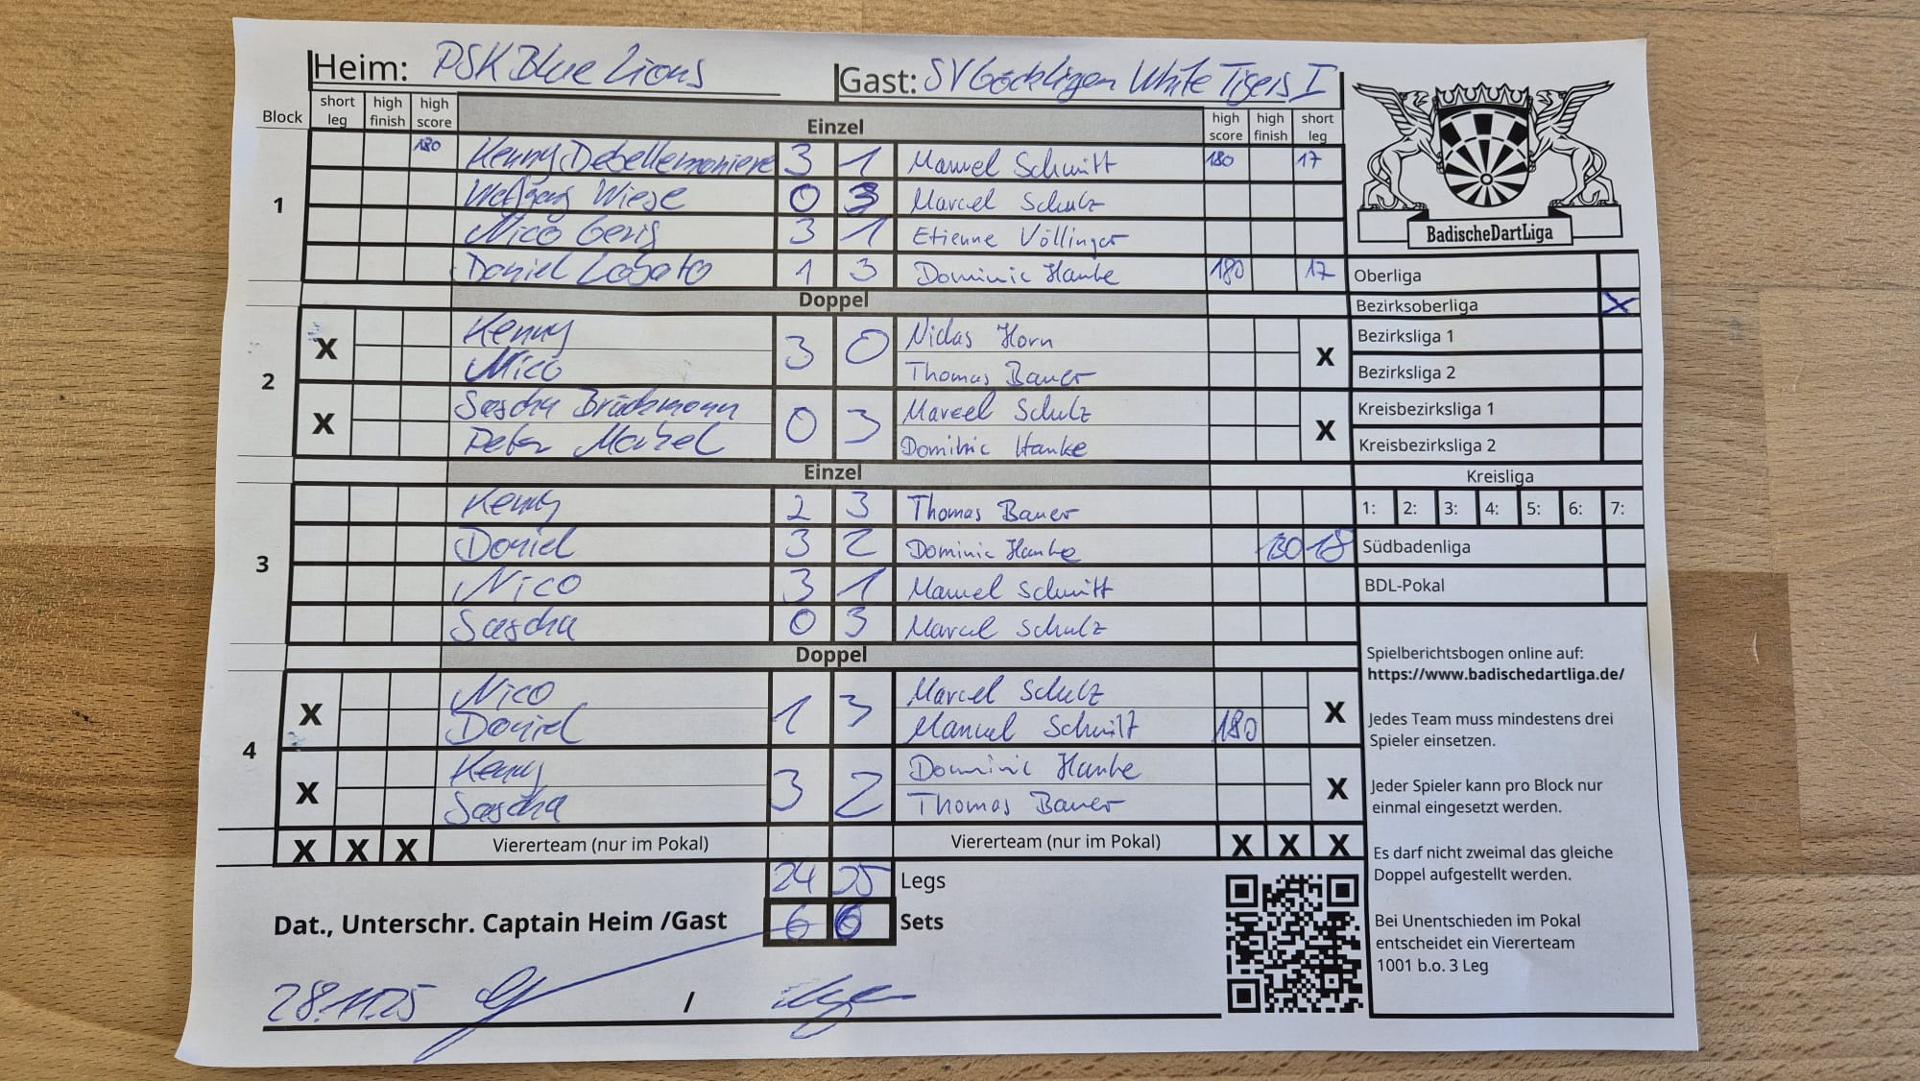 Heim: PSK Blue Lions Gast: SV Göcklingen White Tigers I
Block short leg high finish high score Einzel high score high finish short leg
1
180 Kenny Debellemoniere 3 1 Manuel Schmitt 180 17
Wolfgang Wiese 0 3 Marcel Schulz
Nico Gerig 3 1 Etienne Völlinger
Daniel Lobato 1 3 Dominic Hanke 180 17
Doppel
2
X Kenny 3 0 Niclas Horn X
Nico Thomas Bauer
X Sascha Brückmann 0 3 Marcel Schulz X
Peter Domininic Hanke
Einzel
3
Kenny 2 3 Thomas Bauer
Daniel 3 2 Dominic Hanke 130 18
Nico 3 1 Manuel Schmitt
Sascha 0 3 Marcel Schulz
Doppel
4
X Nico 1 3 Marcel Schulz X
Daniel Manuel Schmitt 180
X Kenny 3 2 Dominic Hanke X
Sascha Thomas Bauer
X X X Viererteam (nur im Pokal) Viererteam (nur im Pokal) X X X
24 25 Legs
Dat., Unterschr. Captain Heim /Gast 6 6 Sets
28.11.25 /
BadischeDartLiga
Oberliga
Bezirksoberliga X
Bezirksliga 1
Bezirksliga 2
Kreisbezirksliga 1
Kreisbezirksliga 2
Kreisliga
1: 2: 3: 4: 5: 6: 7:
Südbadenliga
BDL-Pokal
Spielberichtsbogen online auf:
https://www.badischedartliga.de/
Jedes Team muss mindestens drei
Spieler einsetzen.
Jeder Spieler kann pro Block nur
einmal eingesetzt werden.
Es darf nicht zweimal das gleiche
Doppel aufgestellt werden.
Bei Unentschieden im Pokal
entscheidet ein Viererteam
1001 b.o. 3 Leg